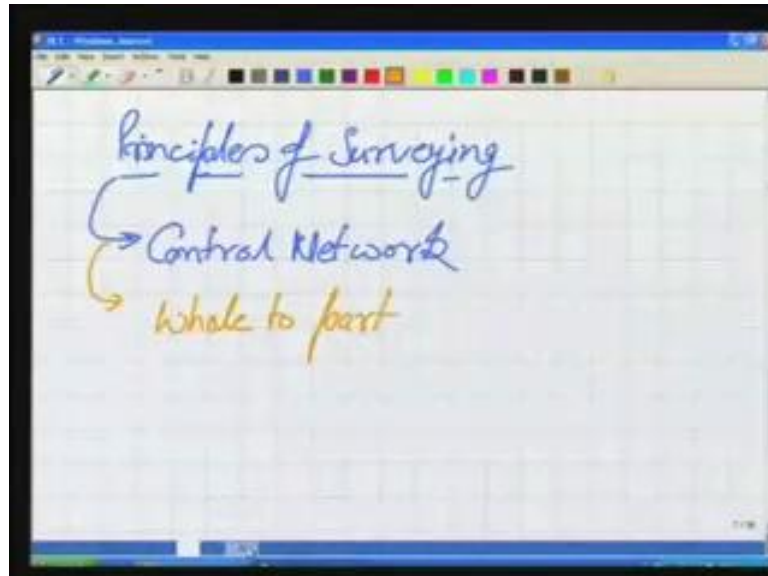 Principles of Surveying
Control Network
Whole to part